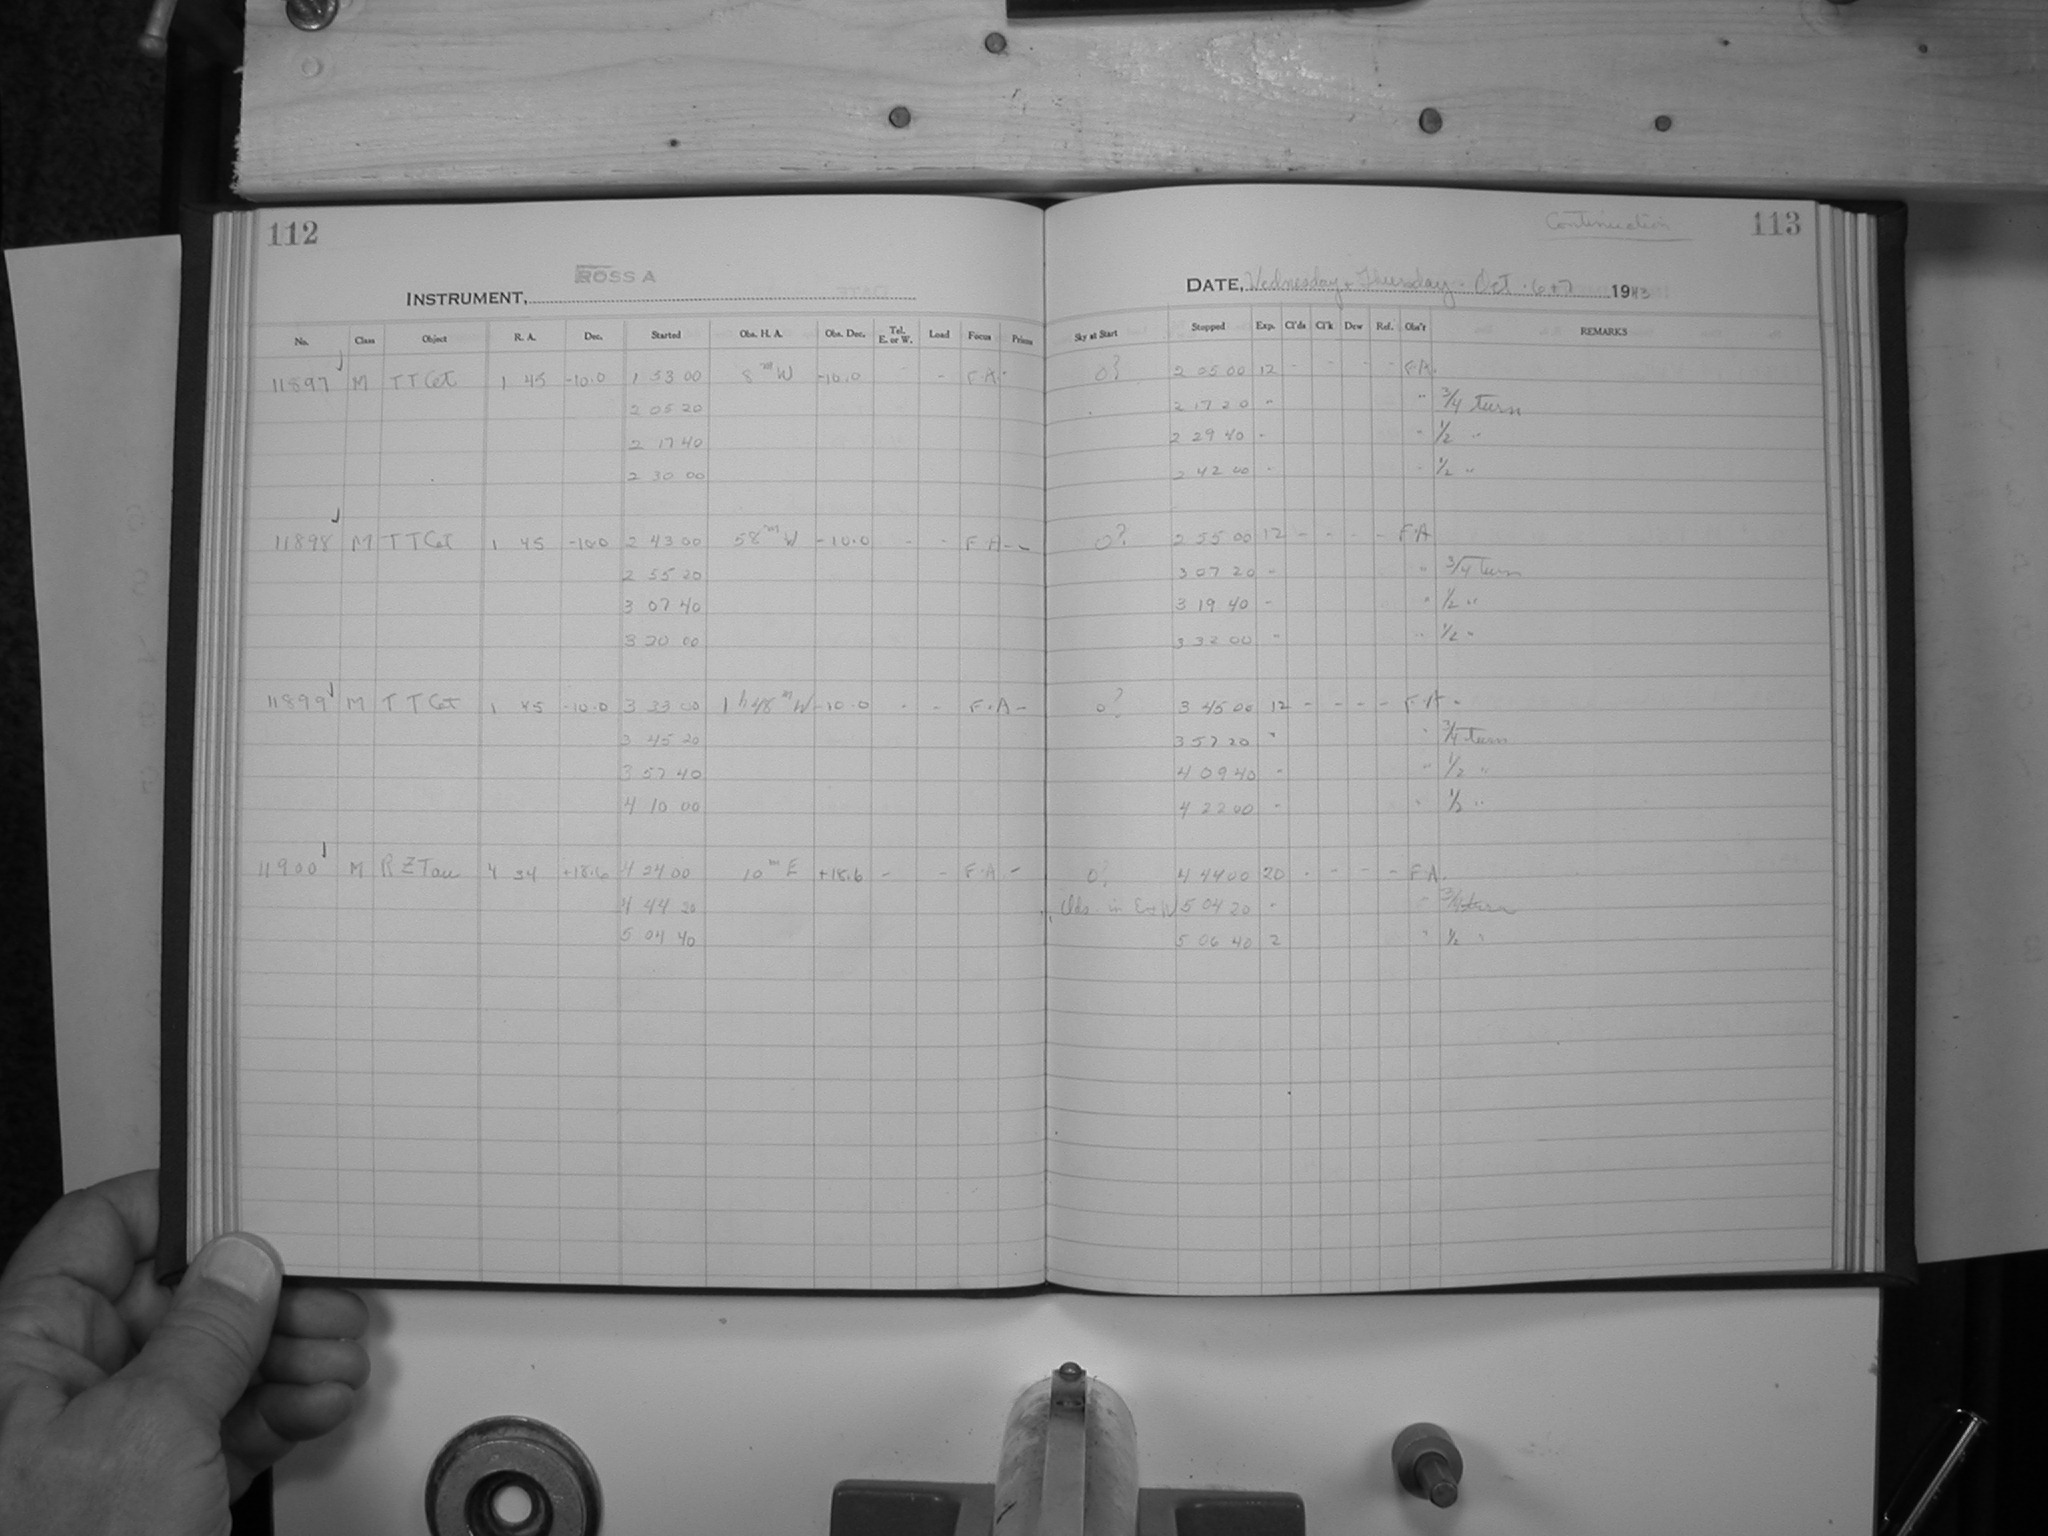 112
ROSS A
INSTRUMENT,
No. Class Object R. A. Dec. Started Obs. H. A. Obs. Dec. Tel. E. or W. Load Focus Prism
11897 M T T Cet 1 45 -10.0 1 53 00 8 m W -10.0 - F.A. -
2 05 20
2 17 40
2 30 00
11898 M T T Cet 1 45 -10.0 2 43 00 58 m W -10.0 - - F A - -
2 55 20
3 07 40
3 20 00
11899 M T T Cet 1 45 -10.0 3 33 00 1 h 48 m W -10.0 - - F.A -
3 45 20
3 57 40
4 10 00
11900 M R Z Tau 4 34 +18.6 4 24 00 10 m E +18.6 - - F.A -
4 44 20
5 04 40
Continuation 113
DATE, Wednesday + Thursday - Oct. 6 + 7 1943
Sky at Start Stopped Exp. Cl'ds Cl'k Dew Ref. Obs'r REMARKS
0? 2 05 00 12 - - - - F.A.
2 17 20 " " 3/4 turn
2 29 40 " " 1/2 "
2 42 00 " " 1/2 "
0? 2 55 00 12 - - - - F.A
3 07 20 " " 3/4 turn
3 19 40 " " 1/2 "
3 32 00 " " 1/2 "
0? 3 45 00 12 - - - - F.A -
3 57 20 " " 3/4 turn
4 09 40 " " 1/2 "
4 22 00 " " 1/2 "
0? 4 44 00 20 - - - - F.A.
Clds. in 5 04 20 " " 3/4 turn
5 06 40 2 " 1/2 "